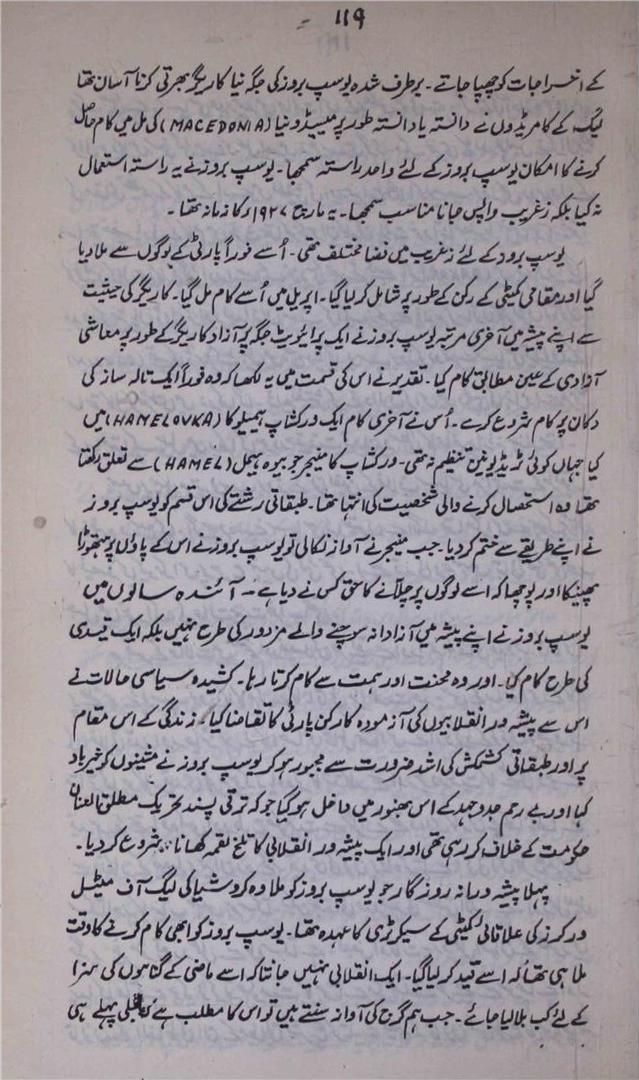 ۱۱۹
کے اخراجات کو چھپا جاتے ۔ برطرف شدہ یوسپ بروز کی جگہ نیا کاریگر بھرتی کرنا آسان تھا
لیگ کے کامریڈوں نے دانستہ یا دانستہ طور پر میسیڈونیا (MACEDONIA) کی مل میں کام حاصل
کرنے کا امکان یوسپ بروز کے لئے واحد راستہ سمجھا۔ یوسپ بروز نے یہ راستہ استعمال
نہ کیا بلکہ زغریب واپس جانا مناسب سمجھا ۔ یہ مارچ ۱۹۲۷ء کا زمانہ تھا ۔
یوسپ بروز کے لئے زغریب میں فضا مختلف تھی ۔ اُسے فوراً پارٹی کے لوگوں سے ملا دیا
گیا اور مقامی کمیٹی کے رکن کے طور پر شامل کر لیا گیا۔ اپریل میں اُسے کام مل گیا۔ کاریگر کی حیثیت
سے اپنے پیشہ میں آخری مرتبہ یوسپ بروز نے ایک پرائیویٹ جگہ پر آزاد کاریگر کے طور پر معاشی
آزادی کے عین مطابق کام کیا ۔ تقدیر نے اس کی قسمت میں یہ لکھا کہ وہ فوراً ایک تالہ ساز کی
دکان پر کام شروع کرے ۔ اُس نے آخری کام ایک ورکشاپ ہیمیلوکا (HAMELOVKA) میں
کیا جہاں کوئی ٹریڈ یونین تنظیم نہ تھی ۔ ورکشاپ کا منیجر جو بیوہ ہیمل (HAMEL) سے تعلق رکھتا
تھا وہ استحصال کرنے والی شخصیت کی انتہا تھا ۔ طبقاتی رشتے کی اس قسم کو یوسپ بروز
نے اپنے طریقے سے ختم کر دیا ۔ جب منیجر نے آواز نکالی تو یوسپ بروز نے اس کے پاؤں پر ہتھوڑا
پھینکا اور پوچھا کہ اسے لوگوں پر چلانے کا حق کس نے دیا ہے ۔ آئندہ سالوں میں
یوسپ بروز نے اپنے پیشہ میں آزادانہ سوچنے والے مزدور کی طرح نہیں بلکہ ایک قیدی
کی طرح کام کیا ۔ اور وہ محنت اور ہمت سے کام کرتا رہا ۔ کشیدہ سیاسی حالات نے
اس سے پیشہ ور انقلابیوں کی آزمودہ کار کن پارٹی کا تقاضا کیا، زندگی کے اس مقام
پر اور طبقاتی کشمکش کی اشد ضرورت سے مجبور ہو کر یوسپ بروز نے مشینوں کو خیر باد
کہا اور بے رحم جدوجہد کے اس بھنور میں داخل ہو گیا جو کہ ترقی پسند تحریک مطلق العنان
حکومت کے خلاف کر رہی تھی اور ایک پیشہ ور انقلابی کا تلخ لقمہ کھانا شروع کر دیا ۔
پہلا پیشہ ورانہ روزگار جو یوسپ بروز کو ملا وہ کروشیا کی لیگ آف میٹل
ورکرز کی علاقائی کمیٹی کے سیکرٹری کا عہدہ تھا ۔ یوسپ بروز کو ابھی کام کرنے کا وقت
ملا ہی تھا کہ اسے قید کر لیا گیا ۔ ایک انقلابی نہیں جانتا کہ اسے ماضی کے گناہوں کی سزا
کے لئے کب بلا لیا جائے ۔ جب ہم گرج کی آواز سنتے ہیں تو اس کا مطلب ہے کہ بجلی پہلے ہی